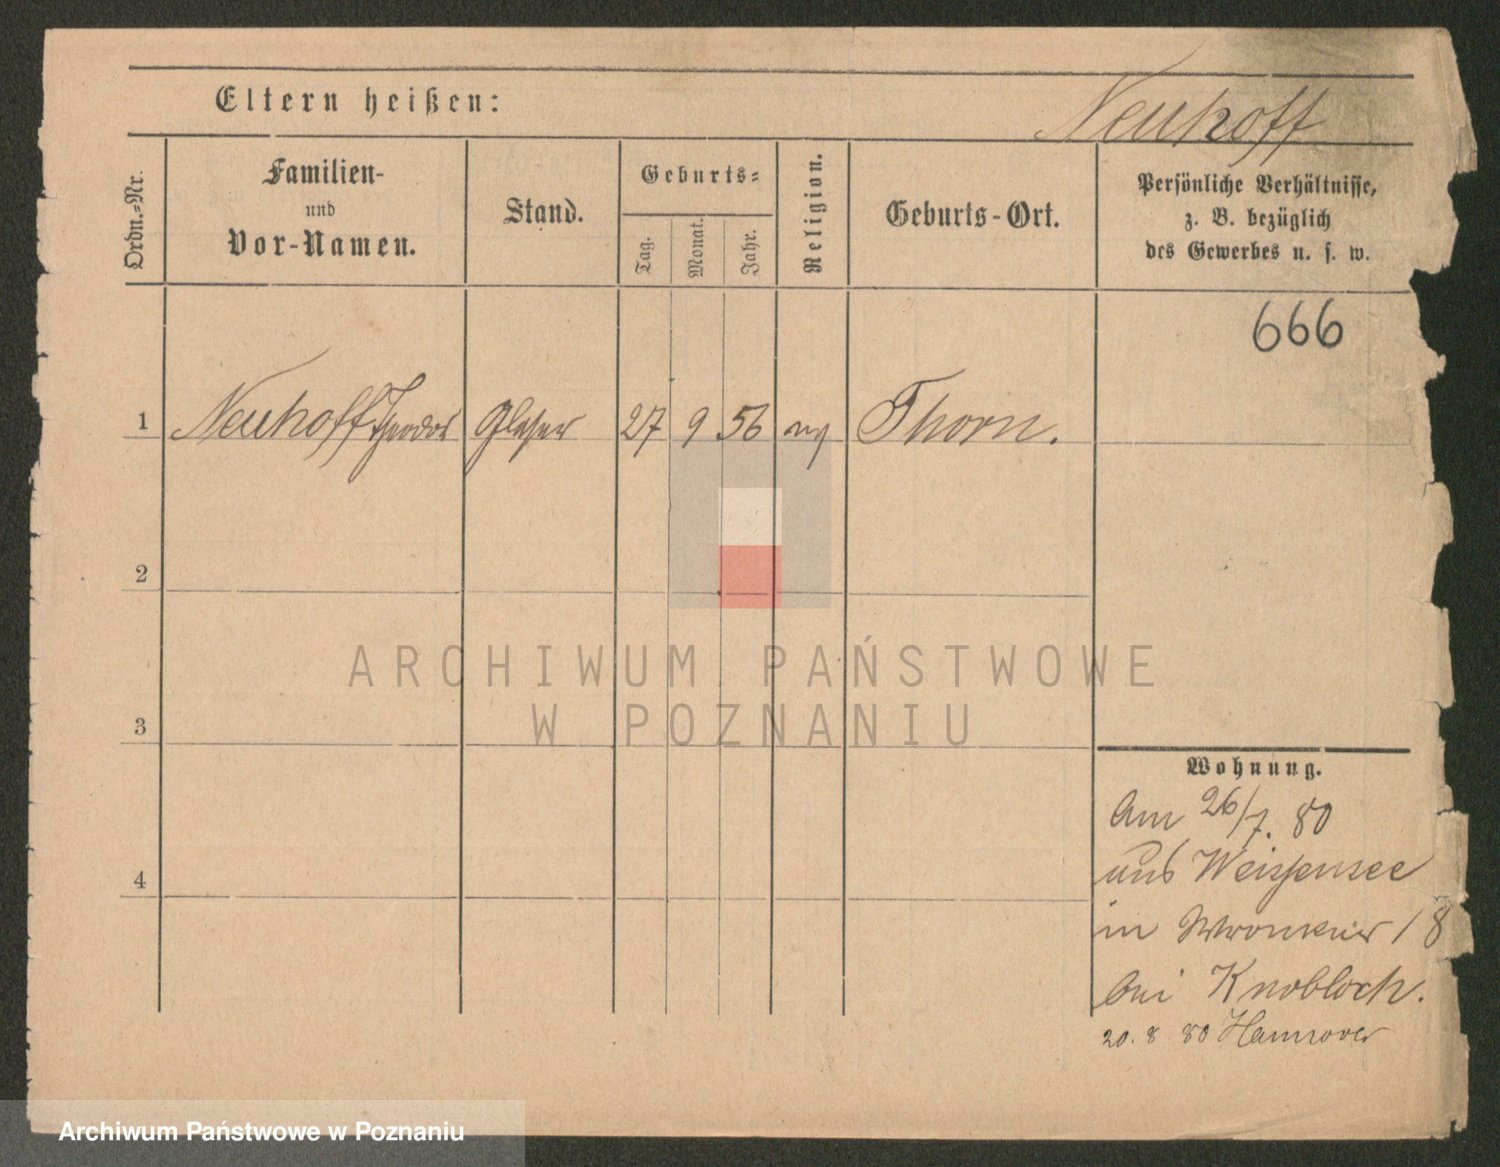 Eltern heißen:
Neuhoff
Ordn.-Nr.
Familien-
und
Vor-Namen.
Stand.
Geburts-
Tag.
Monat.
Jahr.
Religion.
Geburts-Ort.
Persönliche Verhältnisse,
z. B. bezüglich
des Gewerbes u. s. w.
666
1 Neuhoff Theodor Glaser 27 9 56 ev Thorn.
2
3
4
Wohnung.
Am 26/7. 80
aus Weissensee
in Wronker 18
bei Knobloch.
20. 8 80 Hannover
ARCHIWUM PAŃSTWOWE
W POZNANIU
Archiwum Państwowe w Poznaniu